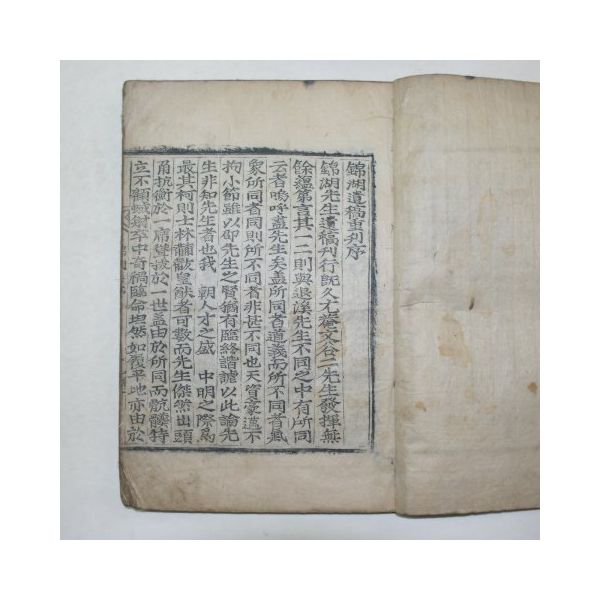 錦湖遺稿重刊序
錦湖先生遺稿刊行旣久尤菴文谷二先生發揮無
餘蘊第言其一二則與退溪先生不同之中有所同
云者嗚呼盡先生矣盖所同者道義而所不同者氣
象所同者同則所不同者非甚不同也天資豪邁不
拘小節雖以卲先生之賢猶有臨終諧謔以此論先
生非知先生者也我 朝人才之盛 中明之際爲
最其柯則士林黼黻皇猷者可數而先生傑然出頭
角抗衡於一席聲敎於一世盖由於所同而骯髒特
立不顧 卒中奇禍臨命坦然如履平地亦由於